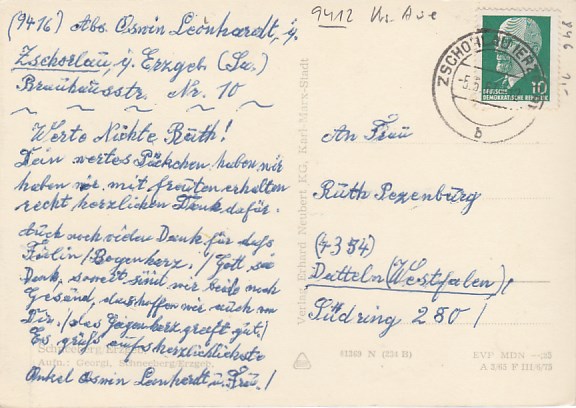 (9416) Abs. Oswin Leonhardt, i.
Zschorlau, i. Erzgeb. (Sa.)
Brauhausstr. Nr. 10
9412
Aue
ZSCHORLAU (ERZ
b
DEUTSCHE
DEMOKRATISCHE REPUBLIK
10
Werte Nichte Ruth!
Dein wertes Päckchen haben wir
haben wir mit freuten erhalten
recht herzlichen Dank dafür.
auch noch vielen Dank für dass
Gott sei
Dank, soweit sind wir beide noch
Gesund, das hoffen wir auch von
Dir!
Es grüßt aufs herzlichlichste
Onkel Oswin Leonhardt u. Frau!
An Frau
Ruth Pezenburg
(4354)
Datteln (Westfalen)!
Südring 280!
Verlag Erhard Neubert KG, Karl-Marx-Stadt
Schneeberg/Erzgeb.
Aufn.: Georgi, Schneeberg/Erzgeb.
EVP MDN